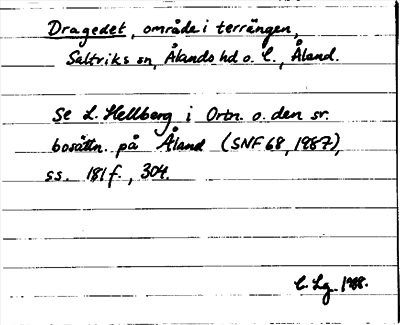 Dragedet, område i terrängen,
Saltviks sn, Ålands hd o. l., Åland.
Se L. Hellberg i Ortn. o. den sv.
bosättn. på Åland (SNF 68, 1987),
ss. 181 f., 304.
C. Lg. 1988.